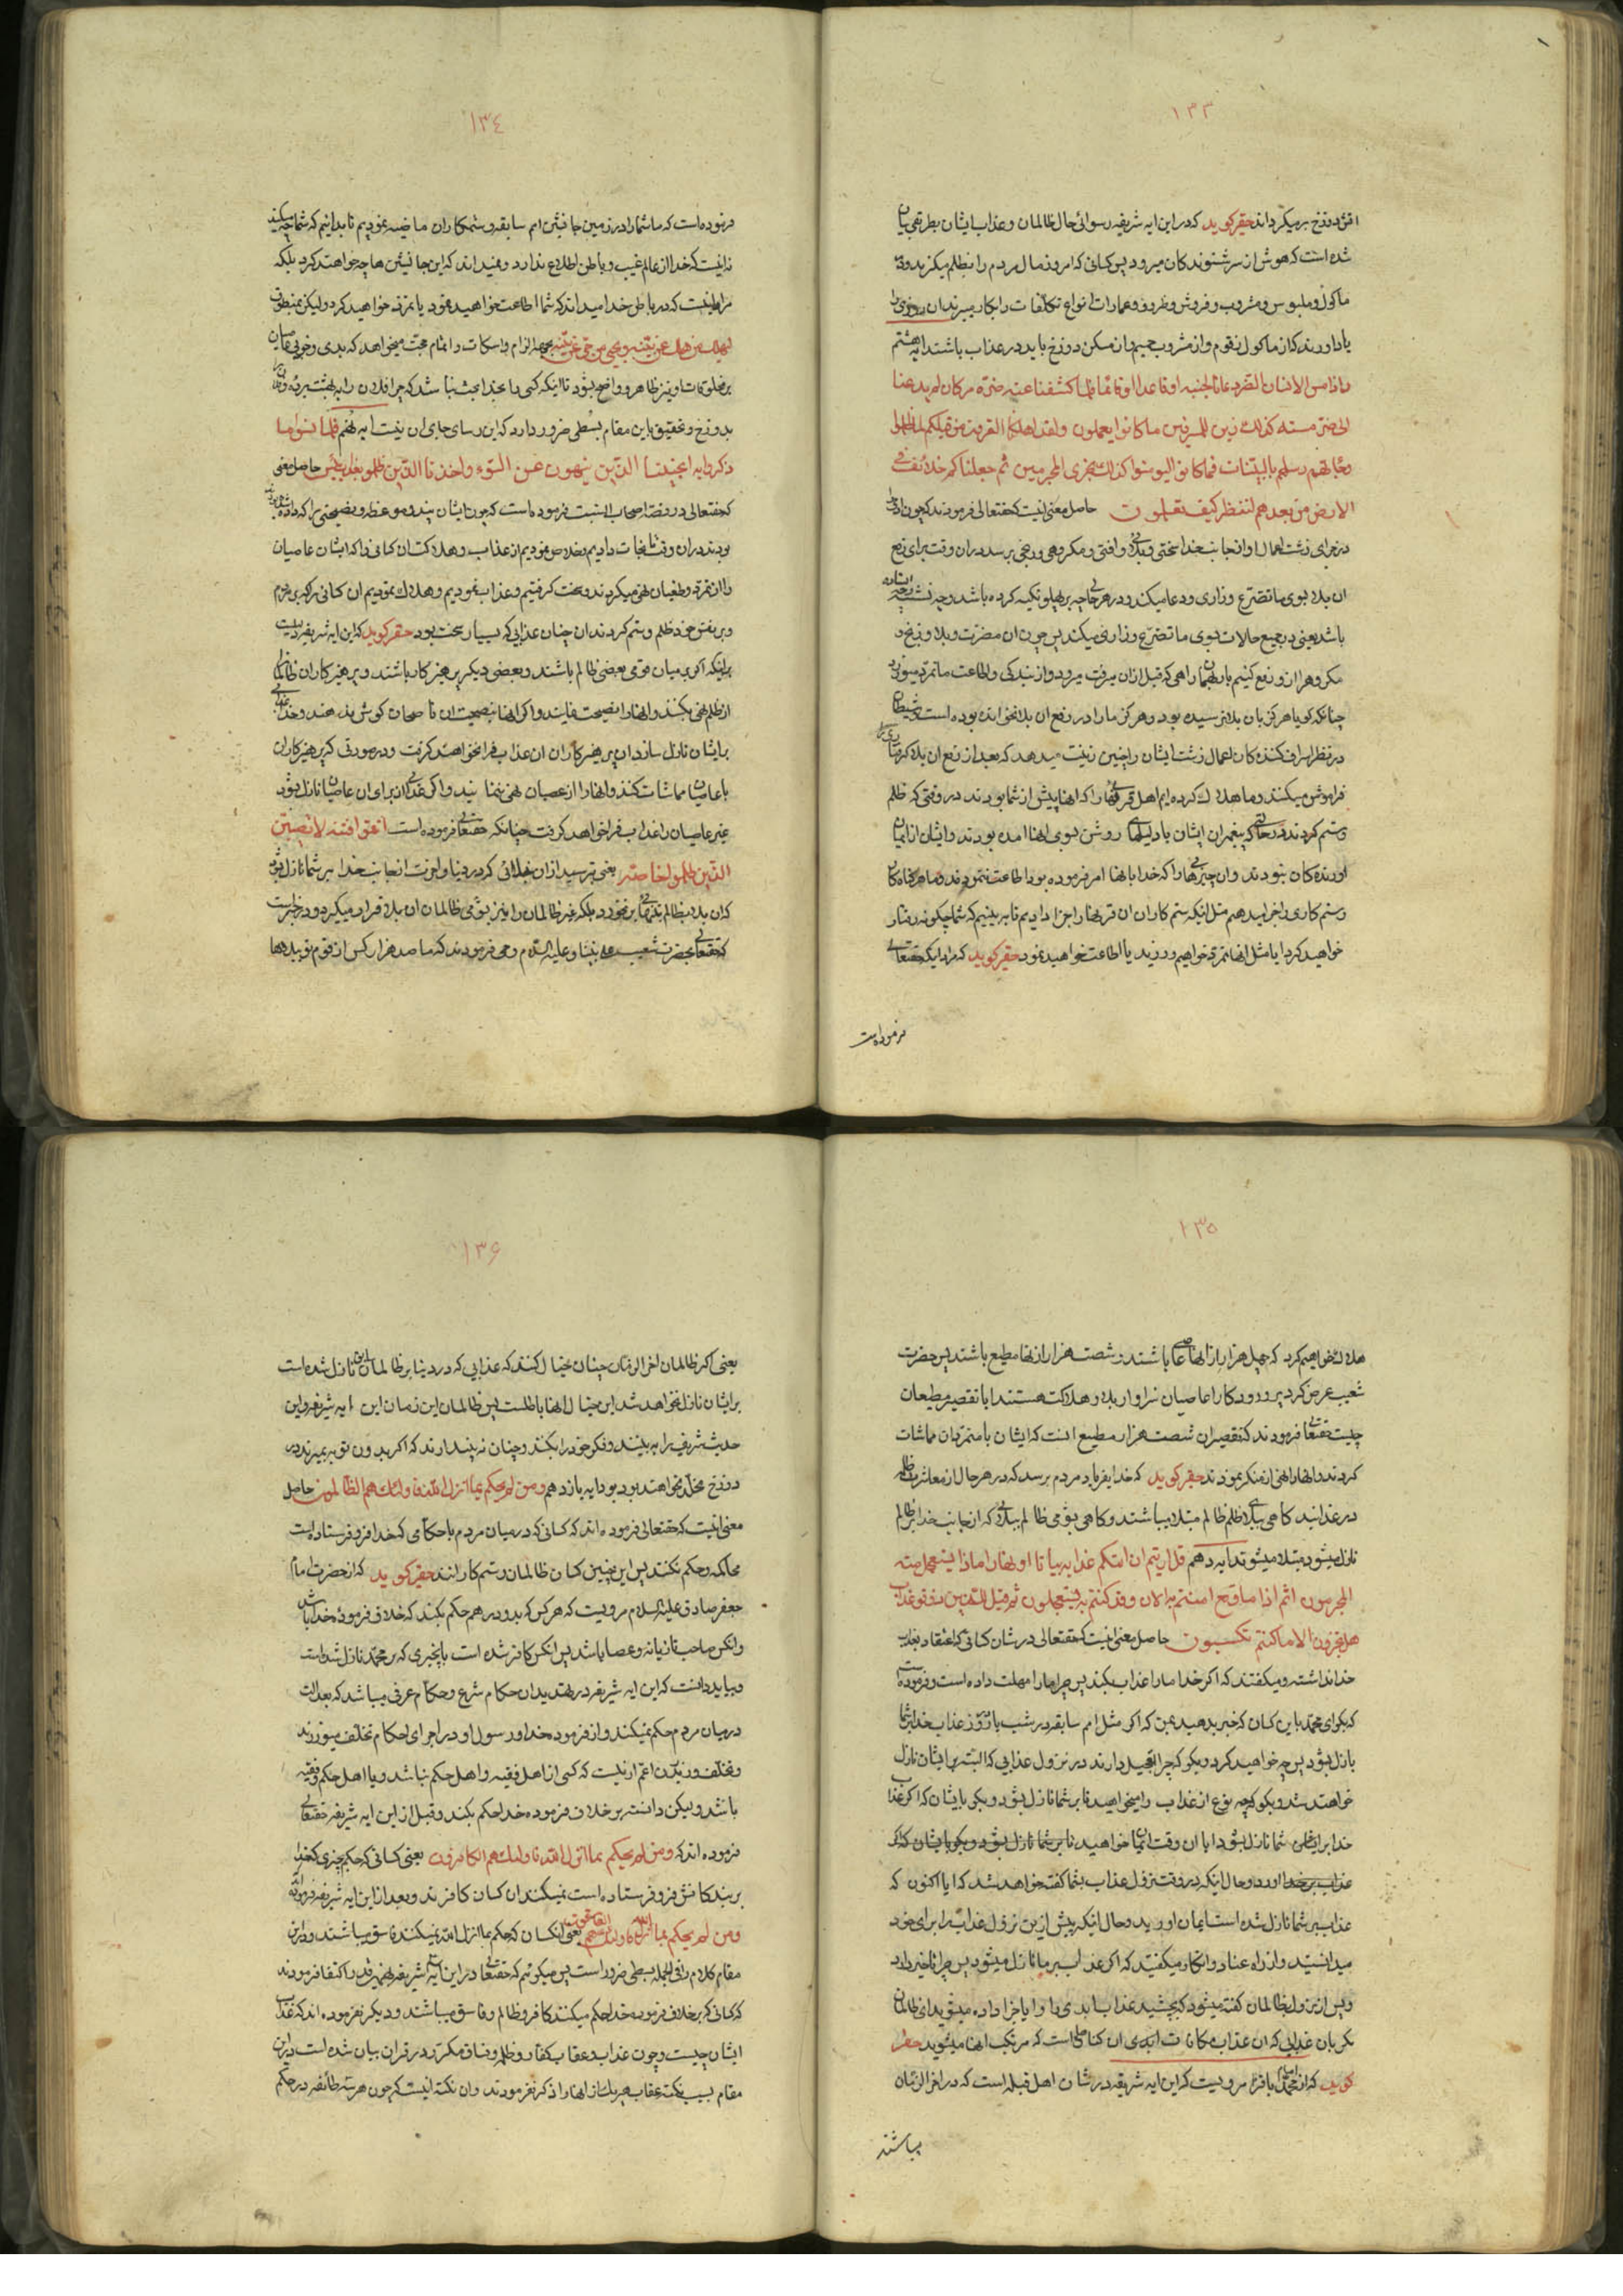 ۱۳۳
افق دوزخ بر میکرداند حقیر کوید که در این ایه شریفه رسوائی حال ظالمان و عذاب ایشان بطریقی بیان
شده است که هوش از سر شنوندکان میرود پس کسانی که امروز مال مردم را بظلم میکیرند و در
ماکول و ملبوس و مشروب و فروش و ظروف و عمارات انواع تکلفات را بکار میبرند ان روزی را
یاد اورند که از ماکول زقوم و از مشروب حمیم و از مسکن دوزخ باید در عذاب باشند ایه هشتم
و اذا مس الانسان الضر دعانا لجنبه او قاعدا او قائما فلما کشفنا عنه ضره مر کان لم یدعنا
الی ضر مسه کذلک زین للمسرفین ما کانوا یعملون ولقد اهلکنا القرون من قبلکم لما ظلموا
و جائتهم رسلهم بالبینات فما کانوا لیومنوا کذلک نجزی المجرمین ثم جعلناکم خلائف فی
الارض من بعدهم لننظر کیف تعملون حاصل معنی اینست که حقتعالی فرمودند که چون ادمی را
در جزای زشت اعمال او از جانب خدا سختی و بلائی و افتی و مکروهی و رنجی برسد در ان وقت برای رفع
ان بلا بسوی ما تضرع و زاری و دعا میکند و در هر حالی چه بر پهلو تکیه کرده باشد و چه نشسته و چه ایستاده
باشد یعنی در جمیع حالات بسوی ما تضرع و زاری میکند پس چون ان مضرت و بلا و رنج و
مکروه را از او رفع کنیم باز بهمان راهی که قبل از ان میرفت میرود و از بندکی و اطاعت ما تمرد میورزد
چنانکه کویا هرکز بان بلا نرسیده بود و هرکز ما را در رفع ان بلا نخوانده بوده است و شیطان
در نظر اسراف کننده کان اعمال زشت ایشان را چنین زینت میدهد که بعد از رفع ان بلا کرم ما را
فراموش میکنند و ما هلاک کرده ایم اهل قریهائی را که انها پیش از شما بودند در وقتی که ظلم
و ستم کردند در حالتی که پیغمبران ایشان با دلیلهای روشن بسوی انها امده بودند و ایشان از ایمان
اورنده کان نبودند و ان چیزهائی را که خدا بانها امر فرموده بود اطاعت ننمودند و ما هر کناه کار
و ستم کاری را جزا میدهیم مثل اینکه ستم کاران ان قریها را جزا دادیم تا به بینیم که شما چکونه رفتار
خواهید کرد ایا مثل انها تمرد خواهیم ورزید یا اطاعت خواهید نمود حقیر کوید که مراد اینکه حقتعالی
فرموده است
۱۳۴
فرموده است که ما شما را در زمین جانشین امم سابقه و ستمکاران ماضیه نمودیم تا بدانیم که شما چه میکنید
نه اینست که خدا از عالم غیب و باطن اطلاع ندارد و نمیداند که این جانشین ها چه خواهند کرد بلکه
مراد اینست که در باطن خدا میداند که شما اطاعت خواهید نمود یا تمرد خواهید کرد و لیکن بمنطوق
لیهلک من هلک عن بینه و یحیی من حی عن بینه بجهة الزام و اسکات و اتمام حجت میخواهد که بدی و خوبی عاصیان
بر مخلوقات او نیز ظاهر و واضح بشود تا اینکه کسی را بخدا بحث نباشد که چرا فلان را به بهشت بردی و فلان را
بدوزخ و تحقیق باین مقام بسطی ضرور دارد که این رساله جای ان نیست ایه نهم فلما نسوا ما
ذکروا به انجینا الذین ینهون عن السوء و اخذنا الذین ظلموا بعذاب بئیس حاصل معنی
که حقتعالی در قصه اصحاب السبت فرموده است که چون ایشان پند و موعظه و نصیحتی را که داده شده
بودند در ان وقت نجات دادیم و خلاص نمودیم از عذاب و هلاکت ان کسانی را که ایشان عاصیان
را از تمرد و طغیان نهی میکردند و سخت کرفتیم و عذاب نمودیم و هلاک نمودیم ان کسانی را که بر مردم
و بر نفس خود ظلم و ستم کردند ان چنان عذابی که بسیار سخت بود حقیر کوید که این ایه شریفه دلیلست
بر اینکه اکر در میان قومی بعضی ظالم باشند و بعضی دیکر پرهیزکار باشند و پرهیزکاران ظالم را
از ظلم نهی بکنند و انها را نصیحت نمایند و اکر انها بنصیحت ان ناصحان کوش ندهند و خدا بلائی
بر ایشان نازل سازد ان پرهیزکاران ان عذاب فرا نخواهند کرفت و در صورتی که پرهیزکاران
با عاصیان مماشات کنند و انها را از عصیان نهی ننمایند و اکر عذابی از برای ان عاصیان نازل بشود
غیر عاصیان را عذاب فرا خواهد کرفت چنانکه حقتعالی فرموده است اتقوا فتنة لا تصیبن
الذین ظلموا خاصة یعنی بترسید از ان بلائی که در دنیا و اخرت از جانب خدا بر شما نازل بشود
که ان بلا بظالم تنها بر نخورد بلکه غیر ظالمان را نیز بشومی ظالمان ان بلا فرا میکیرد و در خبر است
که حقتعالی بحضرت شعیب علی نبینا و علیه السلام وحی فرمودند که ما صد هزار کس از قوم تو ببدها
۱۳۵
هلاک خواهیم کرد که چهل هزار از انها عاصی باشند و شصت هزار از انها مطیع باشند پس حضرت
شعیب عرض کرد پروردکارا عاصیان سزاوار بلا و هلاکت هستند ایا تقصیر مطیعان
چیست حقتعالی فرمودند که تقصیر ان شصت هزار مطیع انست که ایشان با متمردان مماشات
کردند و انها را نهی از منکر ننمودند حقیر کوید که خدا بفریاد مردم برسد که در هر حال از معاشرت ظالم
در عذابند کاهی ببلای ظلم ظالم مبتلا میباشند و کاهی بشومی ظالم ببلائی که از جانب خدا بر ظالم
نازل میشود مبتلا میشوند ایه دهم قل ارایتم ان اتیکم عذابه بیاتا او نهارا ماذا یستعجل منه
المجرمون اثم اذا ما وقع امنتم به الان وقد کنتم به تستعجلون ثم قیل للذین ذوقوا عذاب
هل تجزون الا ما کنتم تکسبون حاصل معنی اینست که حقتعالی در شان کسانی که اعتقاد بعذاب
خدا نداشته و میکفتند که اکر خدا ما را عذاب بکند پس چرا ما را مهلت داده است و فرموده است
که بکو ای محمد باین کسان که خبر بدهید بمن که اکر مثل امم سابقه در شب یا در روز عذاب خدا بر شما
نازل بشود پس چه خواهید کرد و بکو که چرا تعجیل دارند در نزول عذابی که البته بر ایشان نازل
خواهند شد و بکو که چه نوع از عذاب را میخواهید تا بر شما نازل بشود و بکو بایشان که اکر عذاب
خدا بر شما نازل بشود ایا ان وقت ایمان خواهید تا بر شما نازل بشود و بکو بایشان که اکر
عذاب بر خدا اورد و حال اینکه در وقت نزول عذاب بشما کفته خواهد شد که ایا اکنون که
عذاب بر شما نازل شده است ایمان اورید و حال انکه پیش از این نزول عذاب را برای خود
میدانستید و از راه عناد و انکار میکفتید که اکر عذاب بر ما نازل میشود پس چرا تاخیر دارد
و پس از نزول بظالمان کفته میشود که بچشید عذاب ابدی را و ایا جزا داده میشوید ای ظالمان
مکر بان عذابی که ان عذاب مکافات ابدی ان کناهی است که مرتکب انها میشوید حقیر
کوید که از امام محمد باقر مرویست که این ایه شریفه در شان اهل قبله است که در اخر الزمان
میباشند
۱۳۶
یعنی اکر ظالمان اخر الزمان چنان خیال کنند که عذابی که در دنیا بر ظالمان سابق نازل شده است
بر ایشان نازل نخواهد شد این خیال انها باطلست پس ظالمان این زمان این ایه شریفه و این
حدیث شریف را به بینند و فکر خود را بکنند و چنان نه پندارند که اکر بدون توبه بمیرند در
دوزخ مخلد نخواهند بود ایه یازدهم و من لم یحکم بما انزل الله فاولئک هم الظالمون حاصل
معنی اینست که حقتعالی فرموده اند که کسانی که در میان مردم باحکامی که خدا فرو فرستاده است
محاکمه و حکم نکنند پس این چنین کسان ظالمان و ستم کارانند حقیر کوید که از حضرت امام
جعفر صادق علیه السلام مرویست که هر کس که بدو درهم حکم بکند که خلاف فرموده خدا باشد
و انکس صاحب تازیانه و عصا باشد پس انکس کافر شده است بانچیزی که بر محمد نازل شده است
و بباید دانست که این ایه شریفه در تهدید ان حکام شرع و حکام عرفی میباشد که بعدالت
در میان مردم حکم نمیکنند و از فرموده خدا و رسول او در اجرای احکام تخلف میورزند
و تخلف ورزیدن اعم از نیست که کسی از اهل فقیه و اهل حکم نباشد و یا اهل حکم و فقیه
باشد و لیکن دانسته بر خلاف فرموده خدا حکم بکند و قبل از این ایه شریفه حقتعالی
فرموده اند که و من لم یحکم بما انزل الله فاولئک هم الکافرون یعنی کسانی که حکم چیزی که خدا
بر بندکانش فرو فرستاده است نمیکنند ان کسان کافرند و بعد از این ایه شریفه فرموده
و من لم یحکم بما انزل الله فاولئک هم الفاسقون یعنی انکسان که حکم بما انزل الله نمیکنند فاسق میباشند و در این
مقام کلام را فی الجمله بسطی ضرور است پس میکوئیم که حقتعالی در این سه ایه شریفه بهمین قدر اکتفا فرمودند
که کسانی که بر خلاف فرموده خدا حکم میکنند کافر و ظالم و فاسق میباشند و دیکر نفرموده اند که عذاب
ایشان چیست و چون عذاب و عقاب کفار و ظلم و فساق مکرر در قران بیان شده است در این
مقام بسبب نکته عقاب هر یک از انها را ذکر نفرمودند و ان نکته اینست که چون هر سه طائفه در حکم